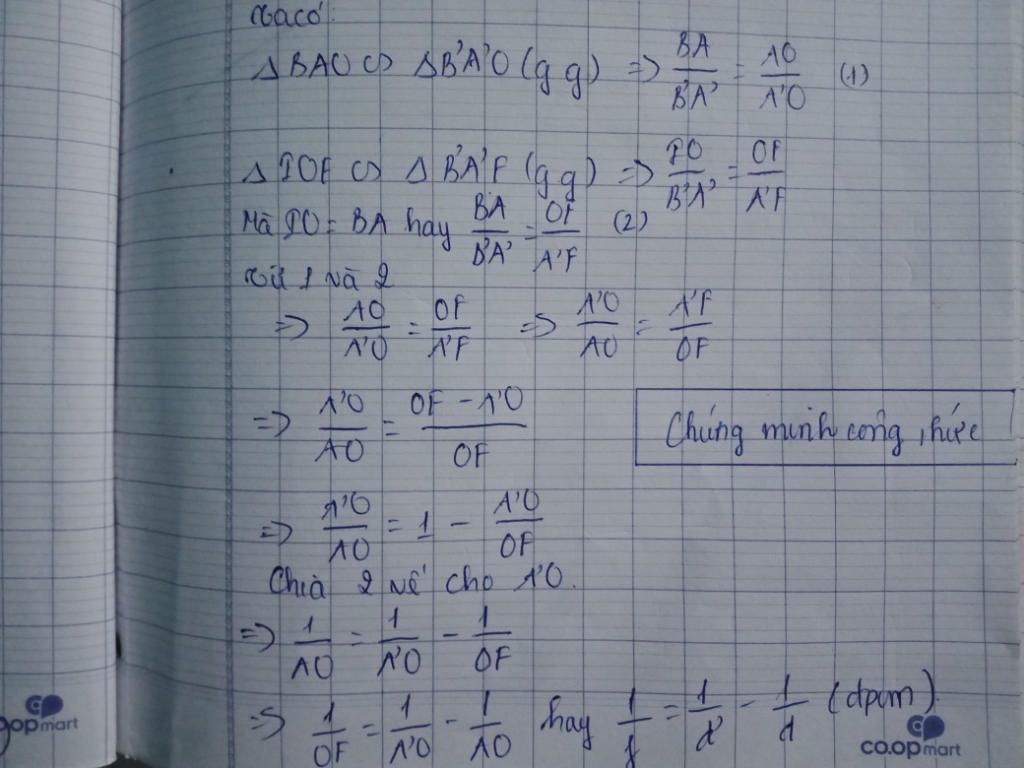 Ta có:
△BAO ∽ △B'A'O (g g) => BA/B'A' = AO/A'O (1)
△IOF ∽ △B'A'F (g g) => IO/B'A' = OF/A'F
Mà IO = BA hay BA/B'A' = OF/A'F (2)
Từ 1 và 2
=> AO/A'O = OF/A'F => A'O/AO = A'F/OF
=> A'O/AO = (OF - A'O)/OF
Chứng minh công thức
=> A'O/AO = 1 - A'O/OF
Chia 2 vế cho A'O.
=> 1/AO = 1/A'O - 1/OF
=> 1/OF = 1/A'O - 1/AO hay 1/f = 1/d' - 1/d (đpcm)
co.opmart
co.opmart